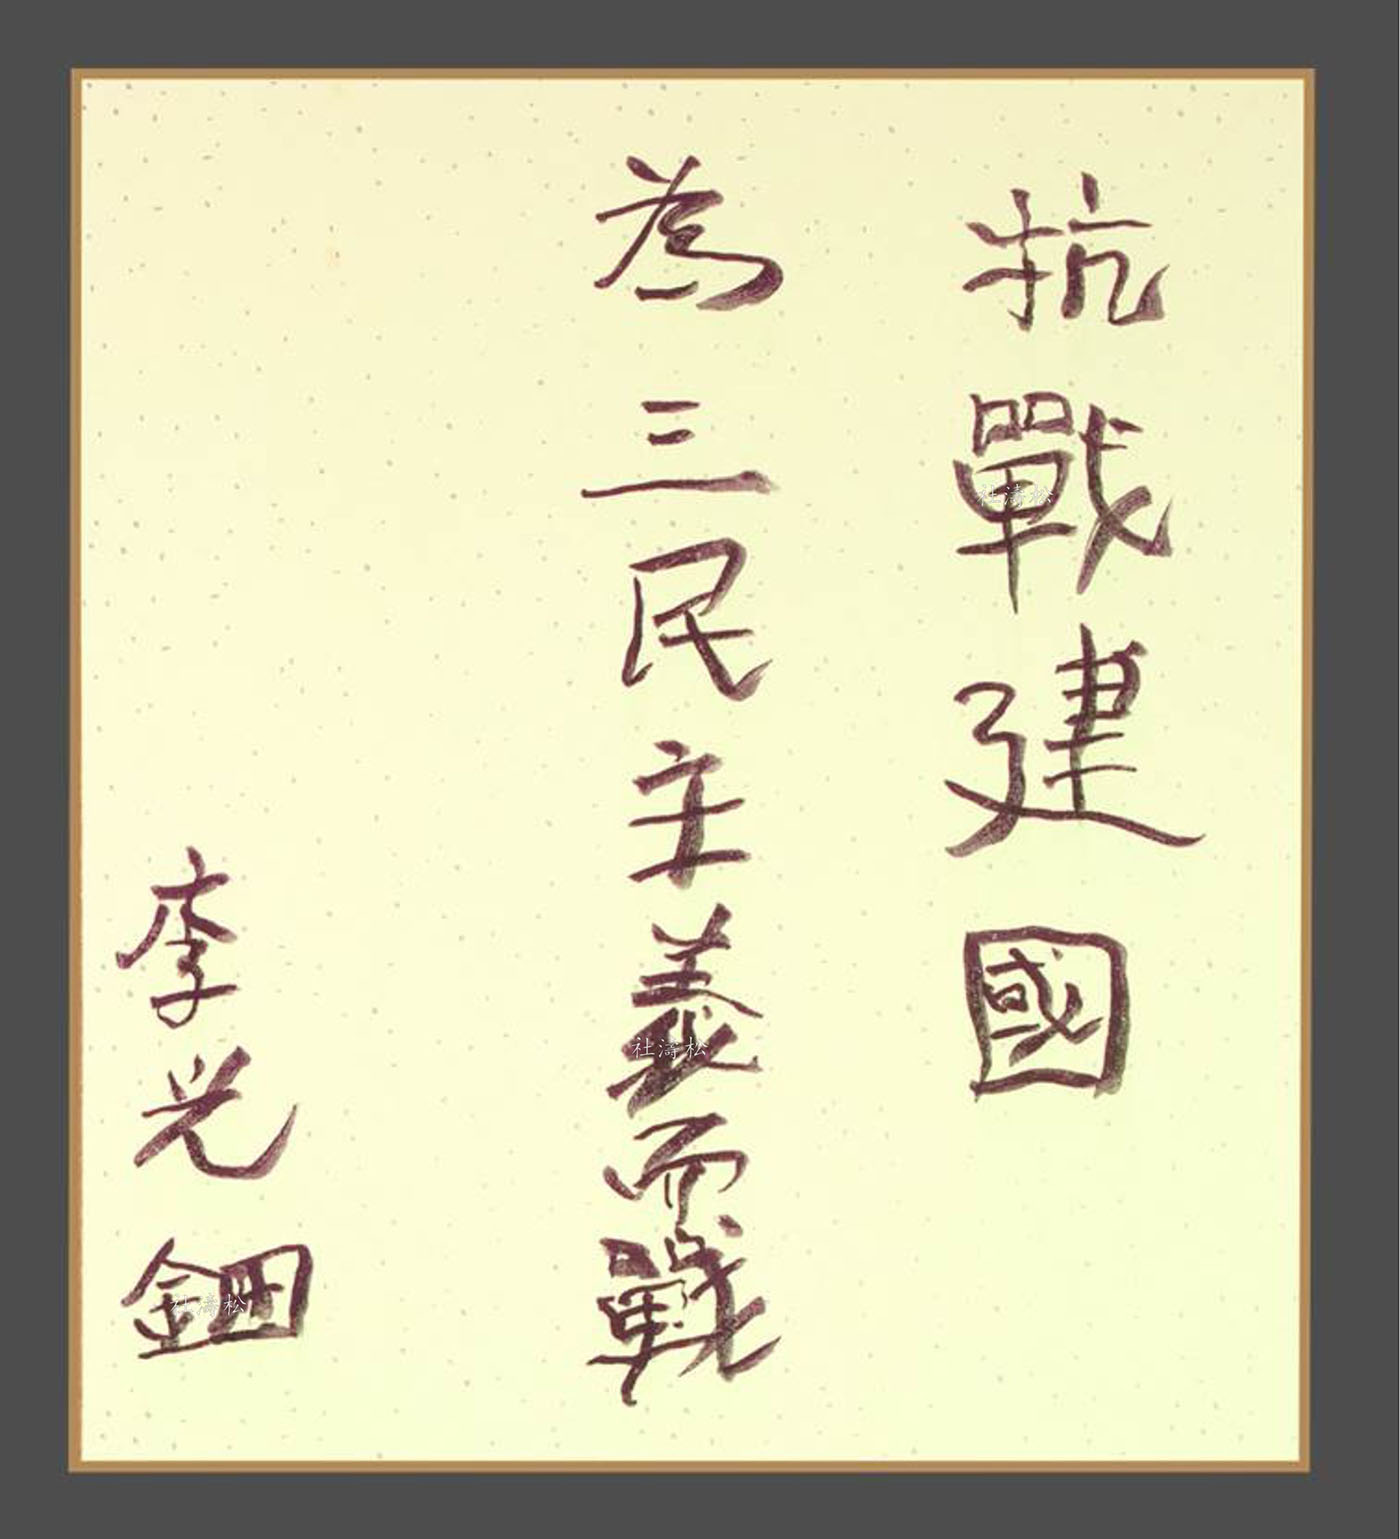 抗戰建國
為三民主義而戰
李光鈿
杜濤松
杜濤松
杜濤松